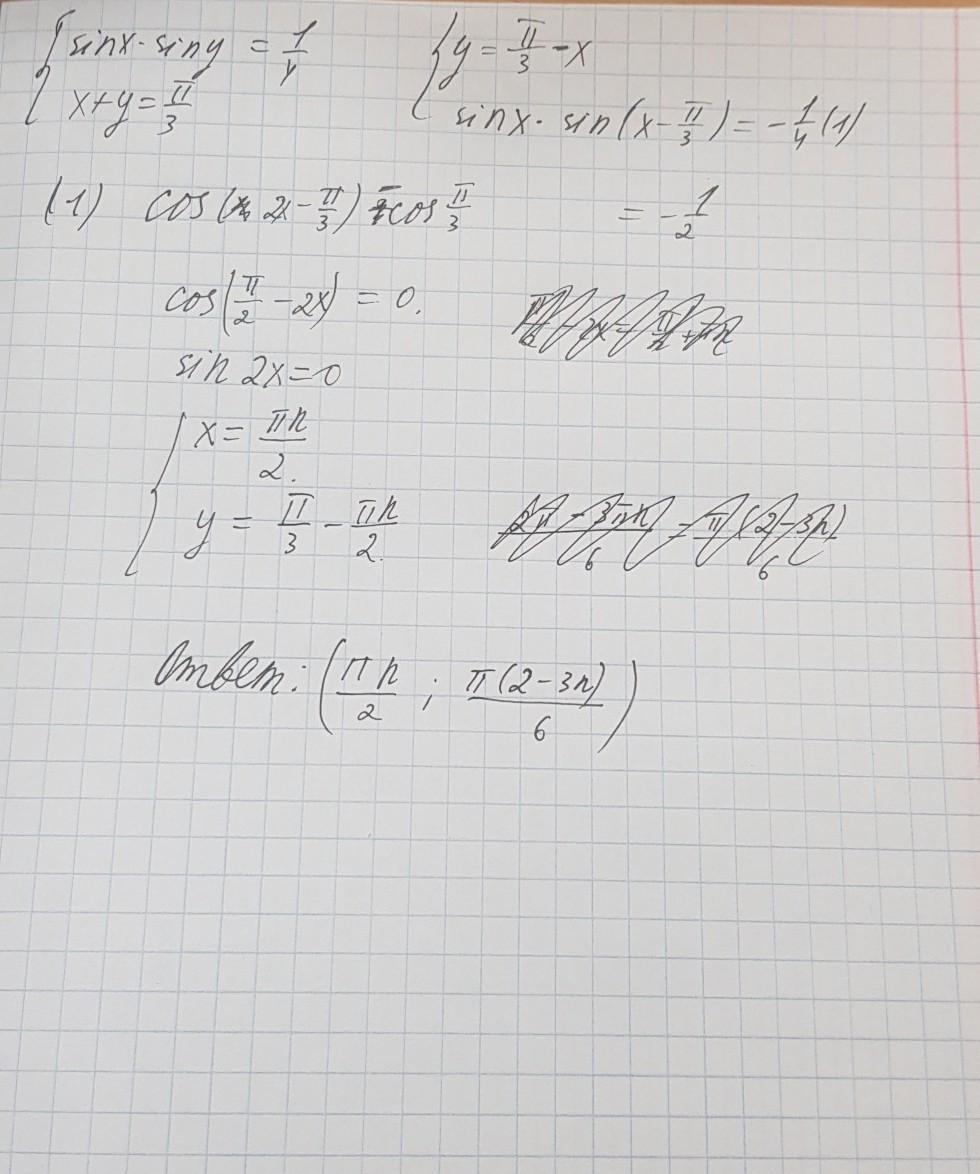 { sinx · siny = 1/4
x+y = π/3
{ y = π/3 - x
sinx · sin(x - π/3) = -1/4 (1)
(1) cos(2x - π/3) - cos π/3 = -1/2
cos(π/2 - 2x) = 0.
sin 2x = 0
{ x = πn/2.
y = π/3 - πn/2.
Ответ: (πn/2 ; π(2-3n)/6)